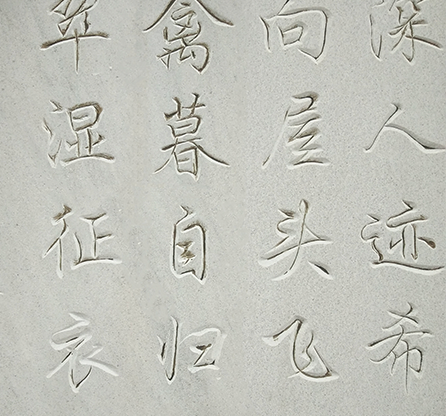 深人迹希
向屋头飞
禽暮自归
翠湿征衣